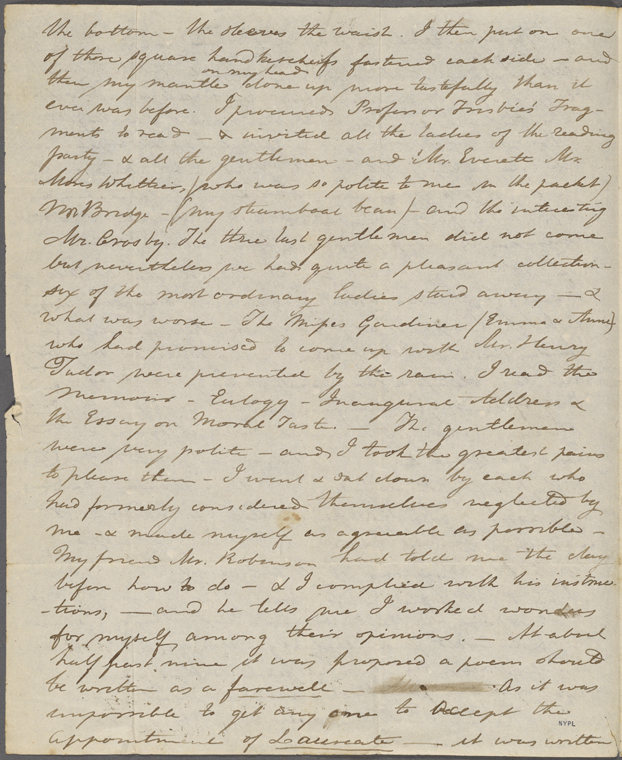 the bottom – the sleeves the waist. I then put on one
of those square handkerchiefs fastened each side – and
on my head
then my mantle done up more tastefully than it
ever was before. I procured Professor Frisbie's Frag-
ments to read – & invited all the ladies of the reading
party – & all the gentlemen – and Mr. Everett Mr.
Moses Whittier, (who was so polite to me in the packet)
Mr Bridge – (my steamboat beau) – and the interesting
Mr. Crosby. The three last gentlemen did not come
but nevertheless we had quite a pleasant collection –
six of the most ordinary ladies staid away — &
what was worse – The Misses Gardiner (Emma & Anne)
who had promised to come up with Mr. Henry
Tudor were prevented by the rain. I read the
Memoir – Eulogy – Inaugural Address &
the Essay on Moral Taste. — The gentlemen
were very polite – and I took the greatest pains
to please them – I went & sat down by each who
had formerly considered themselves neglected by
me – & made myself as agreeable as possible –
My friend Mr. Robinson had told me the day
before how to do – & I complied with his instruc
-tions, — and he tells me I worked wonders
for myself among their opinions. – At about
half past nine it was proposed a poem should
be written as a farewell – As it was
impossible to get any one to accept the
appointment of Laureate — it was written
NYPL